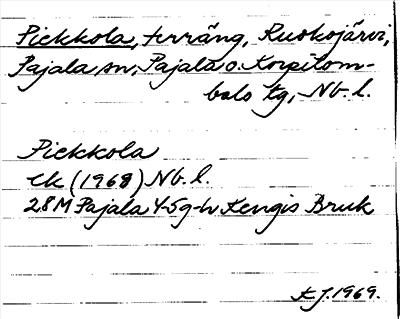 Piekkola, terräng, Ruokojärvi,
Pajala sn, Pajala o. Korpilom-
bolo tg, Nb. l.
Piekkola
Ek (1968) Nb. l.
28M Pajala 4-5g-h Kengis Bruk
1969.